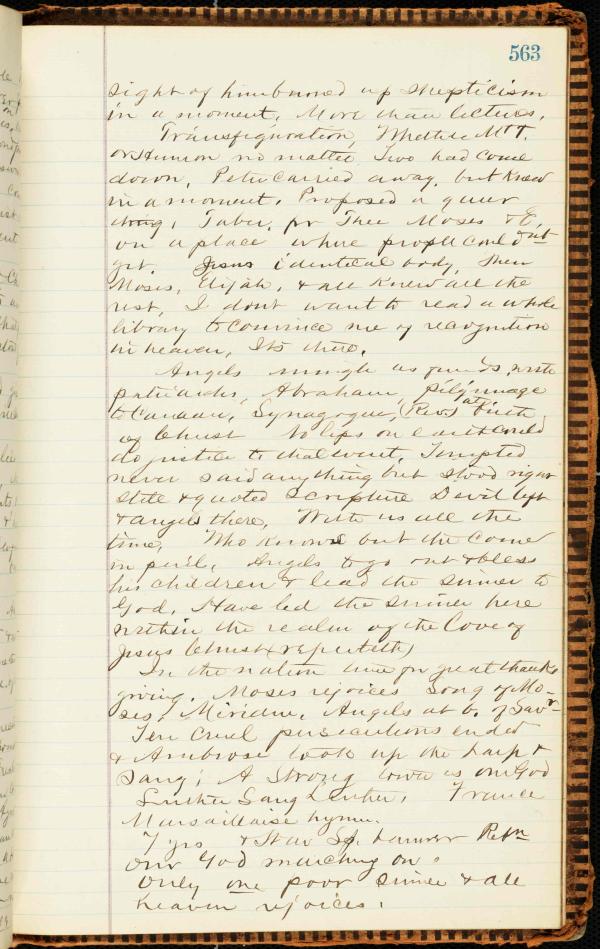 563
sight of him burned up skepticism
in a moment. More than lectures.
Transfiguration, Whether Mt T.
or Hermon no matter Two had come
down, Peter carried away, but knew
in a moment. Proposed a queer
thing, Taber, for Thee Moses & E,
on a place where people could
get. Jesus identical body, then
Moses, Elijah, & all knew all the
rest, I dont want to read a whole
library to convince me of recognition
in heaven, Its there.
Angels mingle as friends, with
patriarchs, Abraham, pilgrimage
to Canaan, Synagogue, at birth
of Christ No lips on earth could
do justice to that event, Tempted
never said anything but stood right
still & quoted Scripture Devil left
& angels there, With us all the
time, Who knows but the come
in peril, Angels to go out & bless
his children & lead the sinner to
God. Have led the sinner here
within the realm of the Love of
Jesus Christ & repenteth)
In the nation time for great thanks
giving. Moses rejoices Song of Mo-
ses, Miriam, Angels at b. of Savr
Ten cruel persecutions ended
& Ambrose took up the harp &
Sang; A Strong town is our God
Luther Sang Luther, France
Marsaillaise hymn.
7 yrs & Star Sp. banner Rebn
Our God marching on.
Only one poor sinner & all
heaven rejoices.